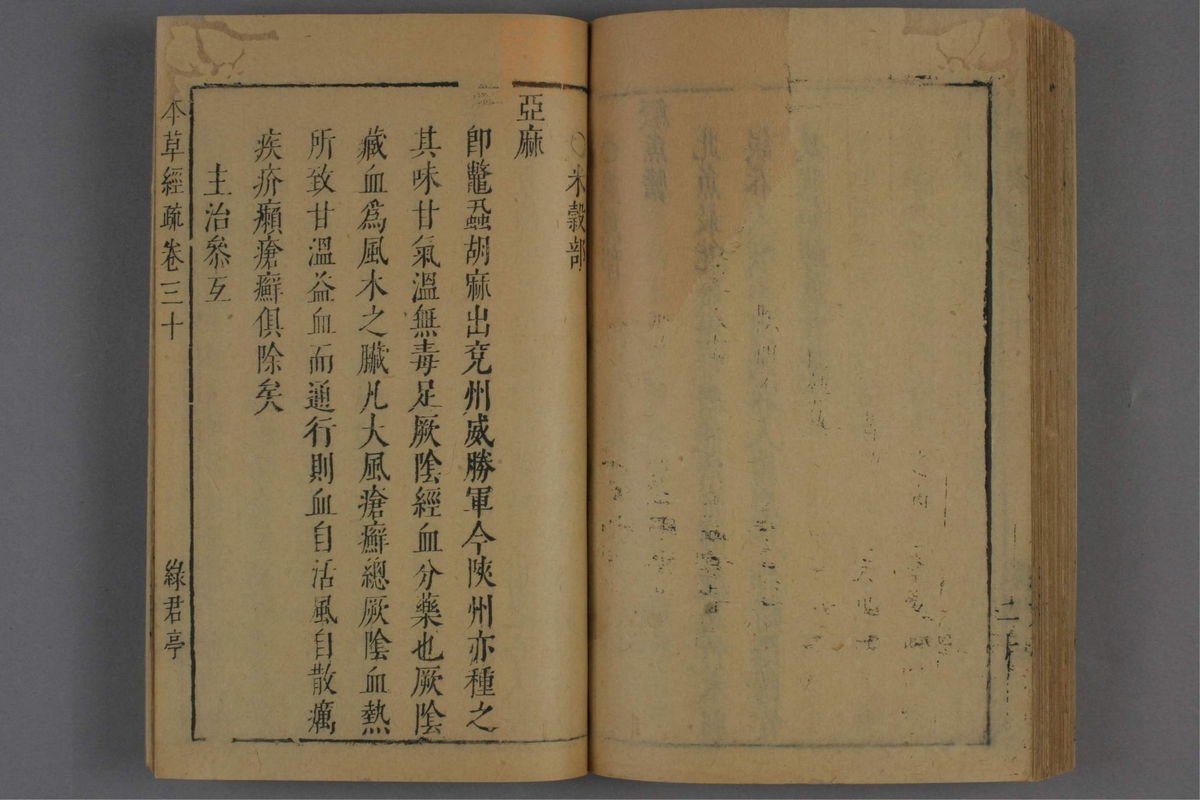 ○米穀部
亞麻
卽鼈蝨胡麻出兗州威勝軍今陝州亦種之
其味甘氣溫無毒足厥陰經血分藥也厥陰
藏血爲風木之臟凡大風瘡癬總厥陰血熱
所致甘溫益血而通行則血自活風自散癘
疾疥癩瘡癬俱除矣
主治參互
本草經疏卷三十
綠君亭